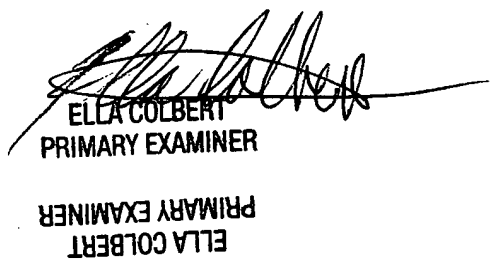 Ella Colbert
ELLA COLBERT
PRIMARY EXAMINER
PRIMARY EXAMINER
ELLA COLBERT